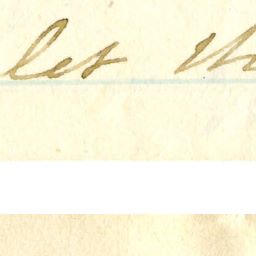 let th